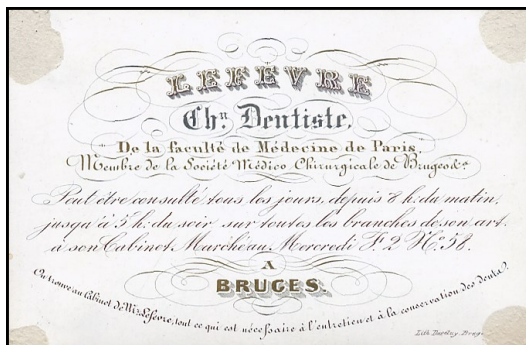 LEFÈVRE
Chn. Dentiste.
De la Faculté de Médecine de Paris,
Membre de la Société Médico Chirurgicale de Bruges &a.
Peut être consulté tous les jours, depuis 8 h. du matin,
jusqu'à 5 h. du soir sur toutes les branches de son art.
à son Cabinet Marché au Mercredi F. 2 No. 58.
A
BRUGES.
On trouve au Cabinet de Mr. Lefevre, tout ce qui est nécessaire à l'entretien et à la conservation des dents.
Lith. Bruges